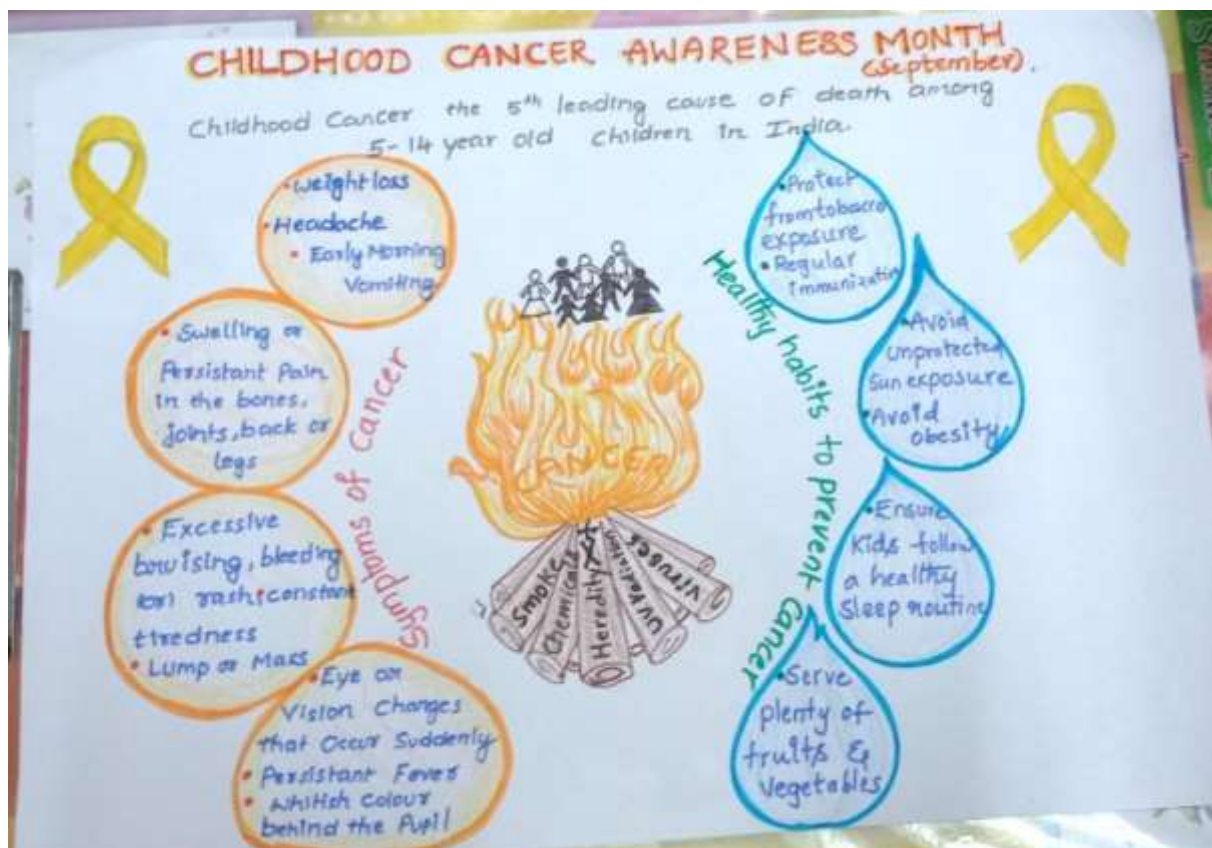 CHILDHOOD CANCER AWARENESS MONTH
(September).
Childhood Cancer the 5th leading cause of death among
5-14 year old children in India.
• Weight loss
• Headache
• Early Morning
Vomiting
• Swelling or
Persistant Pain
in the bones,
joints, back or
legs
• Excessive
bruising, bleeding
(or) rash; constant
tiredness
• Lump or Mass
• Eye or
Vision Changes
that Occur Suddenly
• Persistant Fever
• Whitish Colour
behind the Pupil
Symptoms of Cancer
CANCER
Smoke
Chemicals
Heredity
UV radiation
Viruses
Healthy habits to prevent Cancer
• Protect
from tobacco
exposure
• Regular
immunization
• Avoid
unprotected
Sun exposure
• Avoid
obesity
• Ensure
Kids follow
a healthy
Sleep routine
• Serve
plenty of
fruits &
vegetables